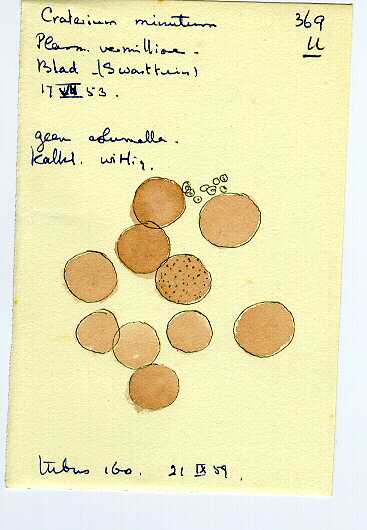 Craterium minutum 369
Plasm. vermillioen. U
Blad (Swarttuin)
17 VII 53.
geen columella.
Kalkl. wittig.
Kubus 160. 21 IX 59.